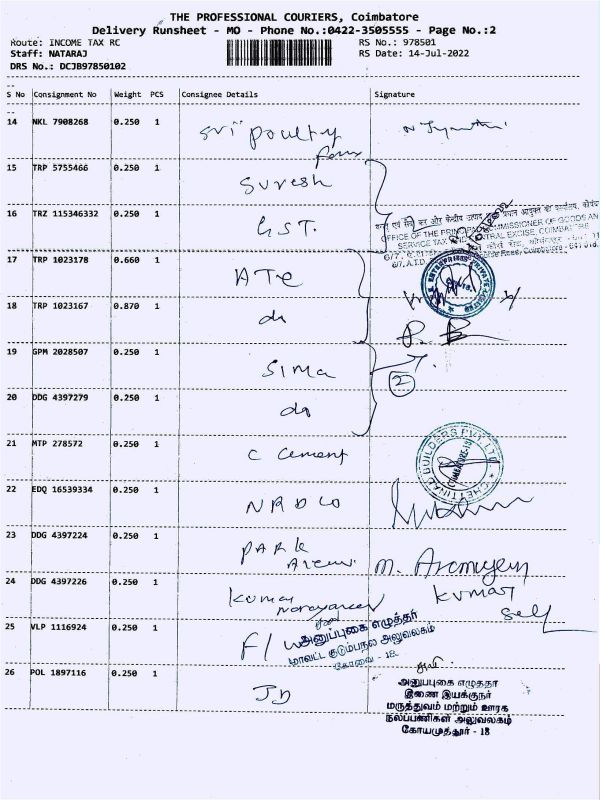 THE PROFESSIONAL COURIERS, Coimbatore
Delivery Runsheet - MO - Phone No.:0422-3505555 - Page No.:2
Route: INCOME TAX RC
RS No.: 978501
Staff: NATARAJ
RS Date: 14-Jul-2022
DRS No.: DCJB97850102
S No Consignment No Weight PCS Consignee Details Signature
14 NKL 7908268 0.250 1 Sri poultry
farm
15 TRP 5755466 0.250 1 Suresh
16 TRZ 115346332 0.250 1 GST.
OFFICE OF THE PRINCIPAL COMMISSIONER OF GOODS AN
SERVICE TAX CENTRAL EXCISE, COIMBATORE
17 TRP 1023178 0.660 1 ATE
ENTERPRISES PRIVATE LIMITED
18 TRP 1023167 0.870 1 do
19 GPM 2028507 0.250 1 Sima
2
20 DDG 4397279 0.250 1 do
21 MTP 278572 0.250 1 C Cement
CHETTINAD BUILDERS PVT. LTD.
22 EDQ 16539334 0.250 1
23 DDG 4397224 0.250 1 PARK
24 DDG 4397226 0.250 1 Kumar
Narayanan
Kumar
Self
25 VLP 1116924 0.250 1 F/
அனுப்புகை எழுத்தர்
மாவட்ட குடும்பநல அலுவலகம்
கோவை - 18.
26 POL 1897116 0.250 1 JD
அனுப்புகை எழுத்தர்
இணை இயக்குநர்
மருத்துவம் மற்றும் ஊரக
நலப்பணிகள் அலுவலகம்
கோயமுத்தூர் - 18